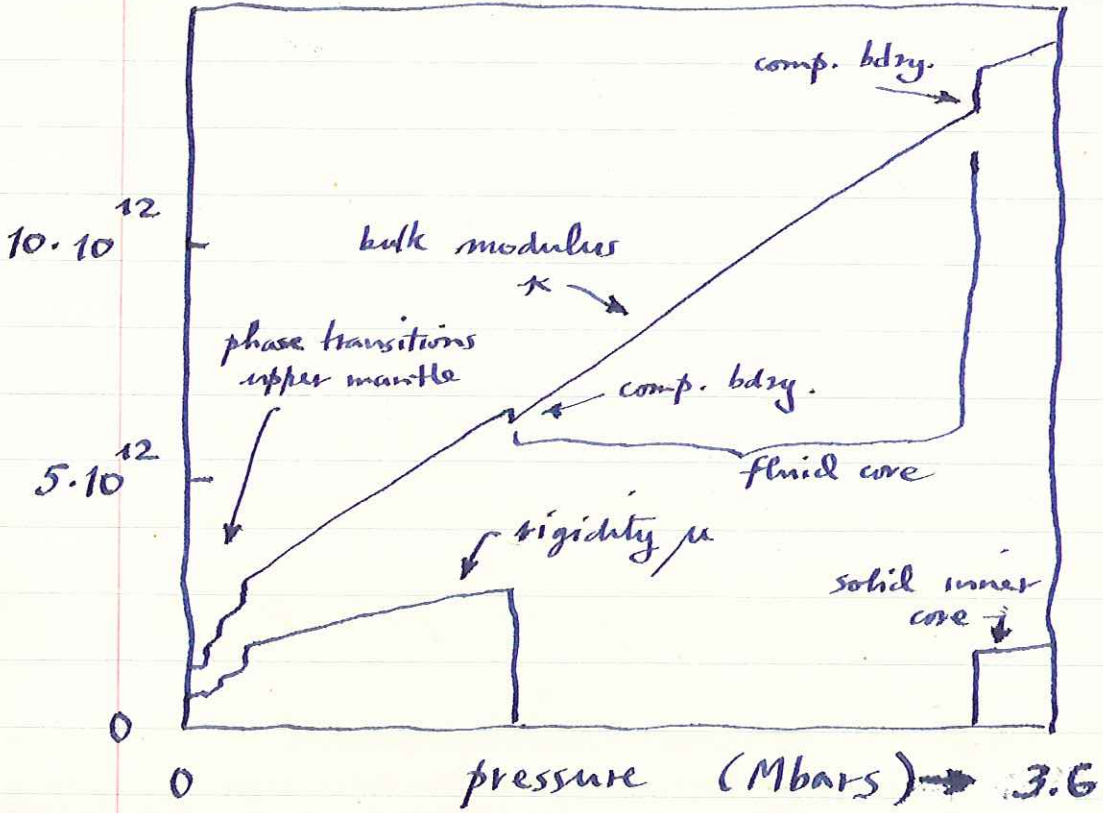 comp. bdry.
10·10¹²
bulk modulus
κ
phase transitions
upper mantle
comp. bdry.
5·10¹²
fluid core
rigidity μ
solid inner
core
0
0 pressure (Mbars) → 3.6